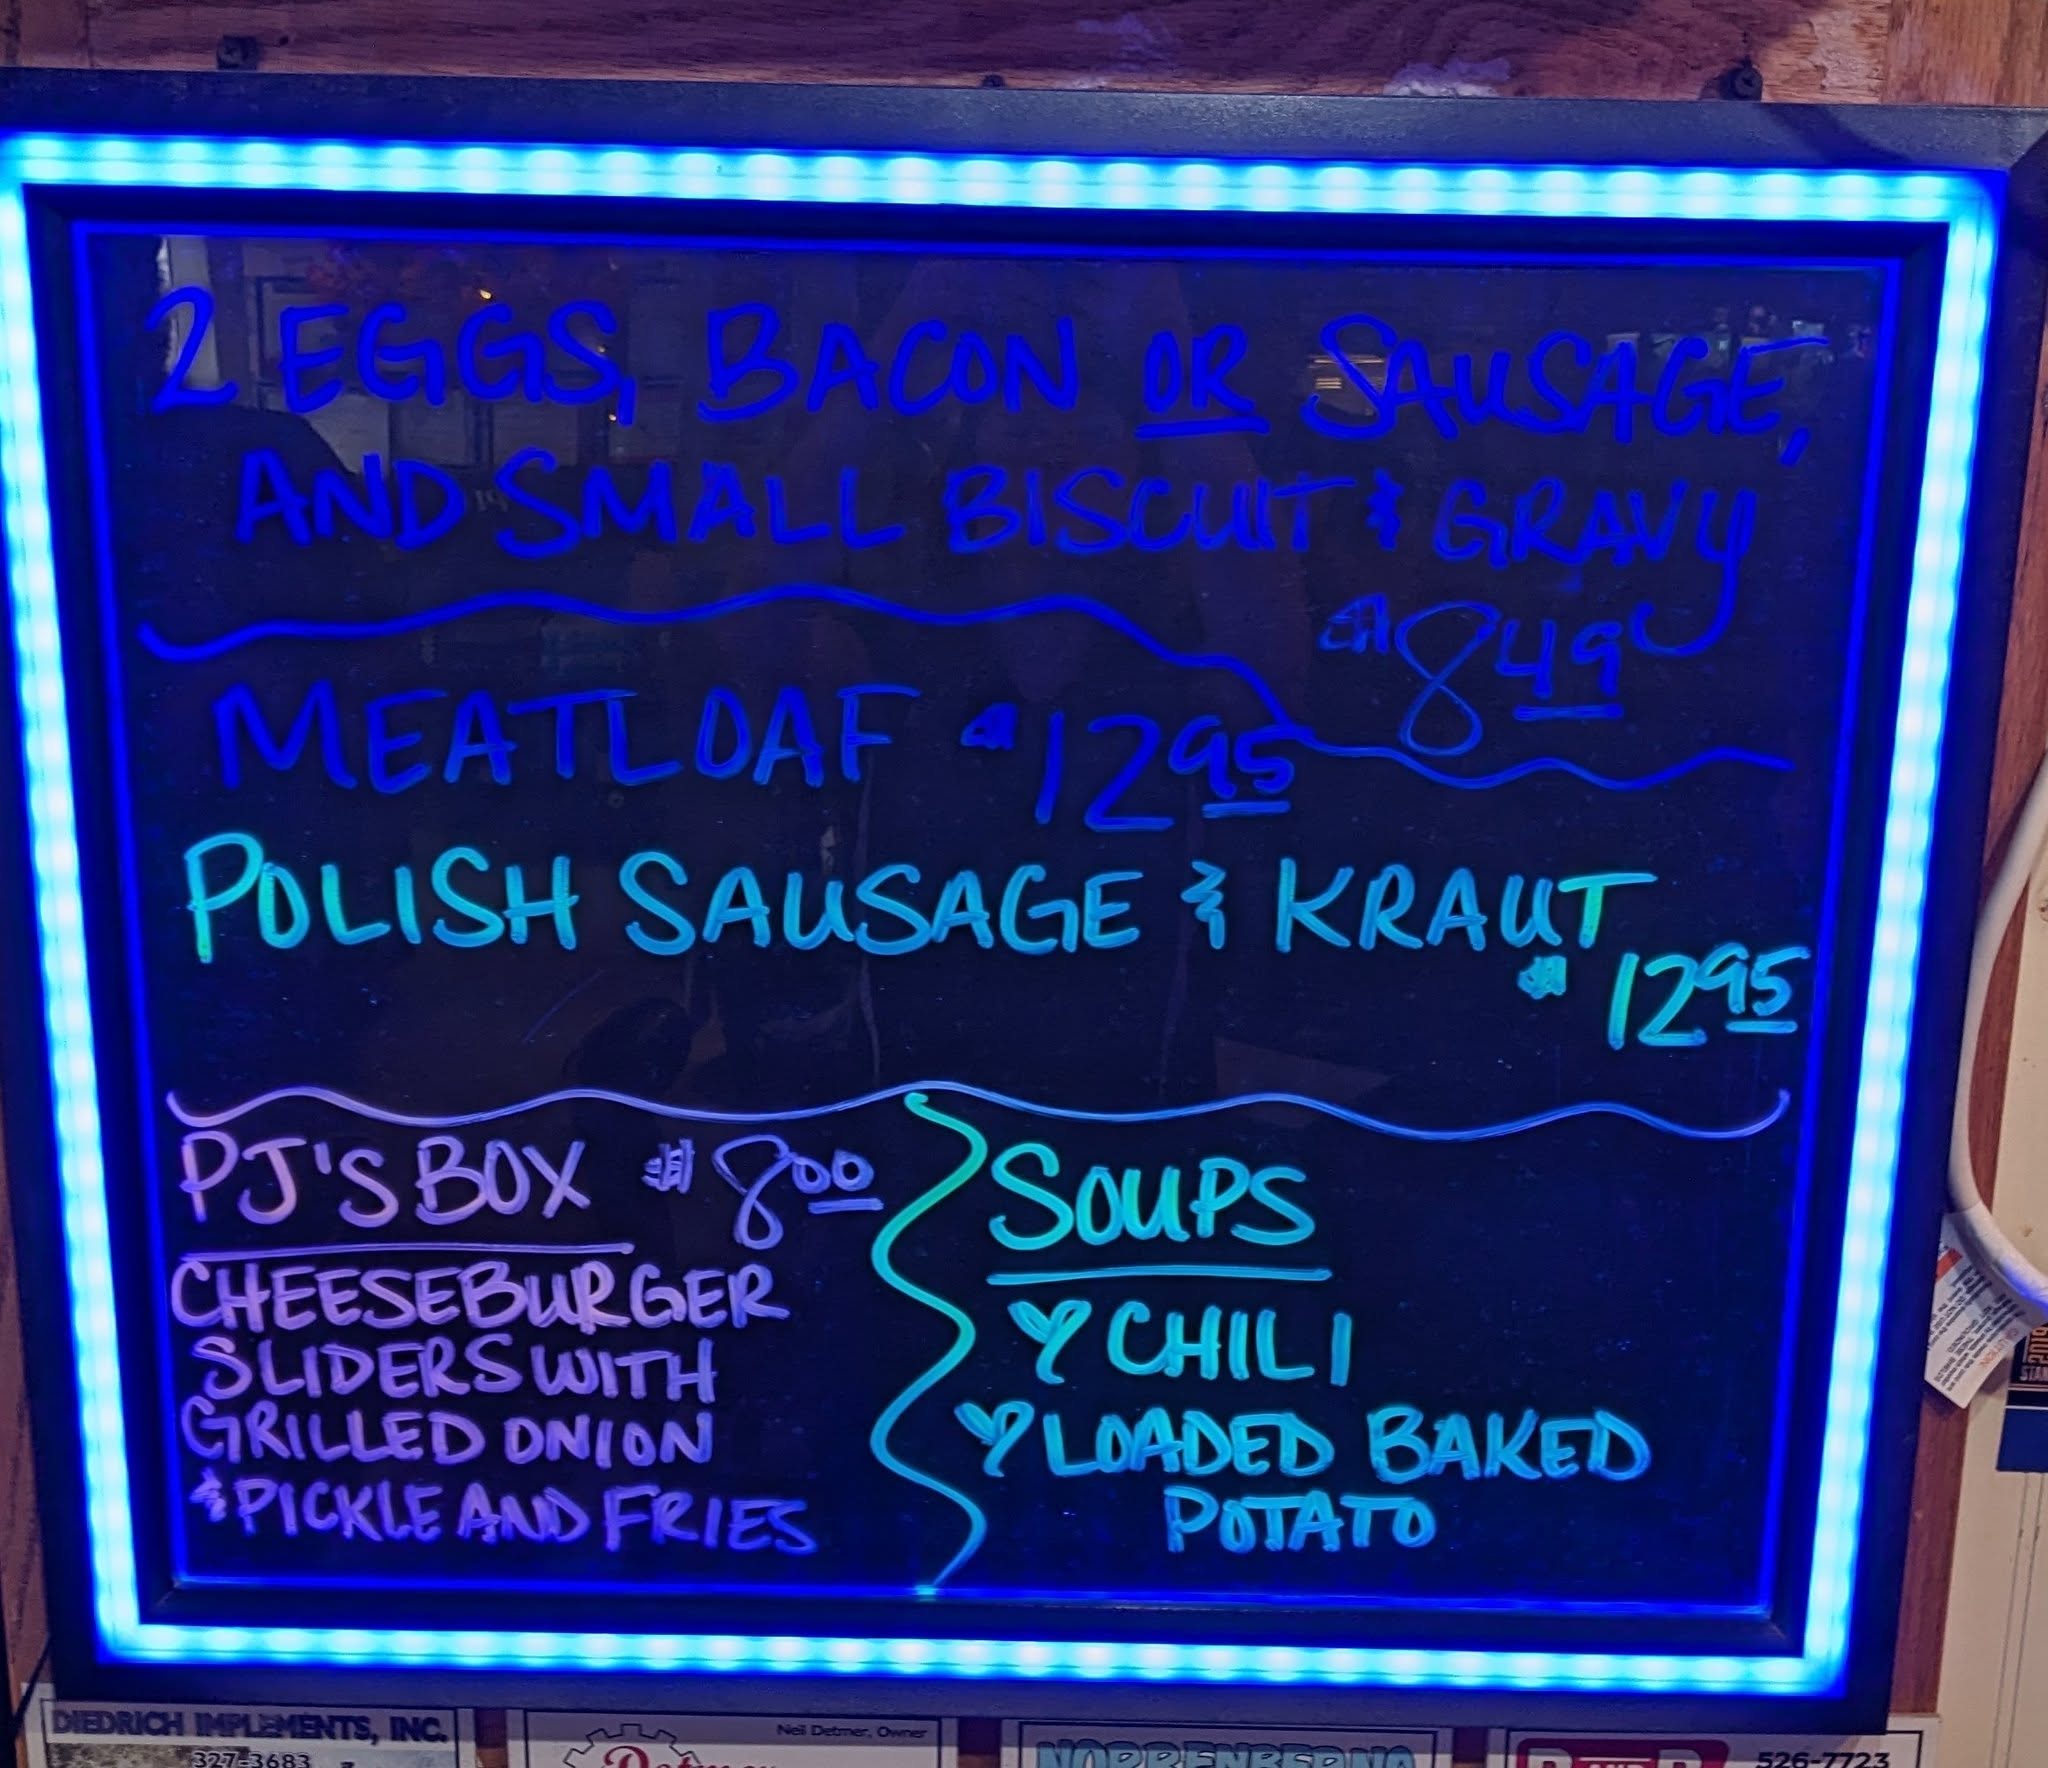 2 EGGS, BACON OR SAUSAGE,
AND SMALL BISCUIT & GRAVY
$8.49
MEATLOAF $12.95
POLISH SAUSAGE & KRAUT
$12.95
PJ'S BOX $8.00
CHEESEBURGER
SLIDERS WITH
GRILLED ONION
& PICKLE AND FRIES
SOUPS
CHILI
LOADED BAKED
POTATO
DIEDRICH IMPLEMENTS, INC.
327-3683
Neil Detmer, Owner
526-7723